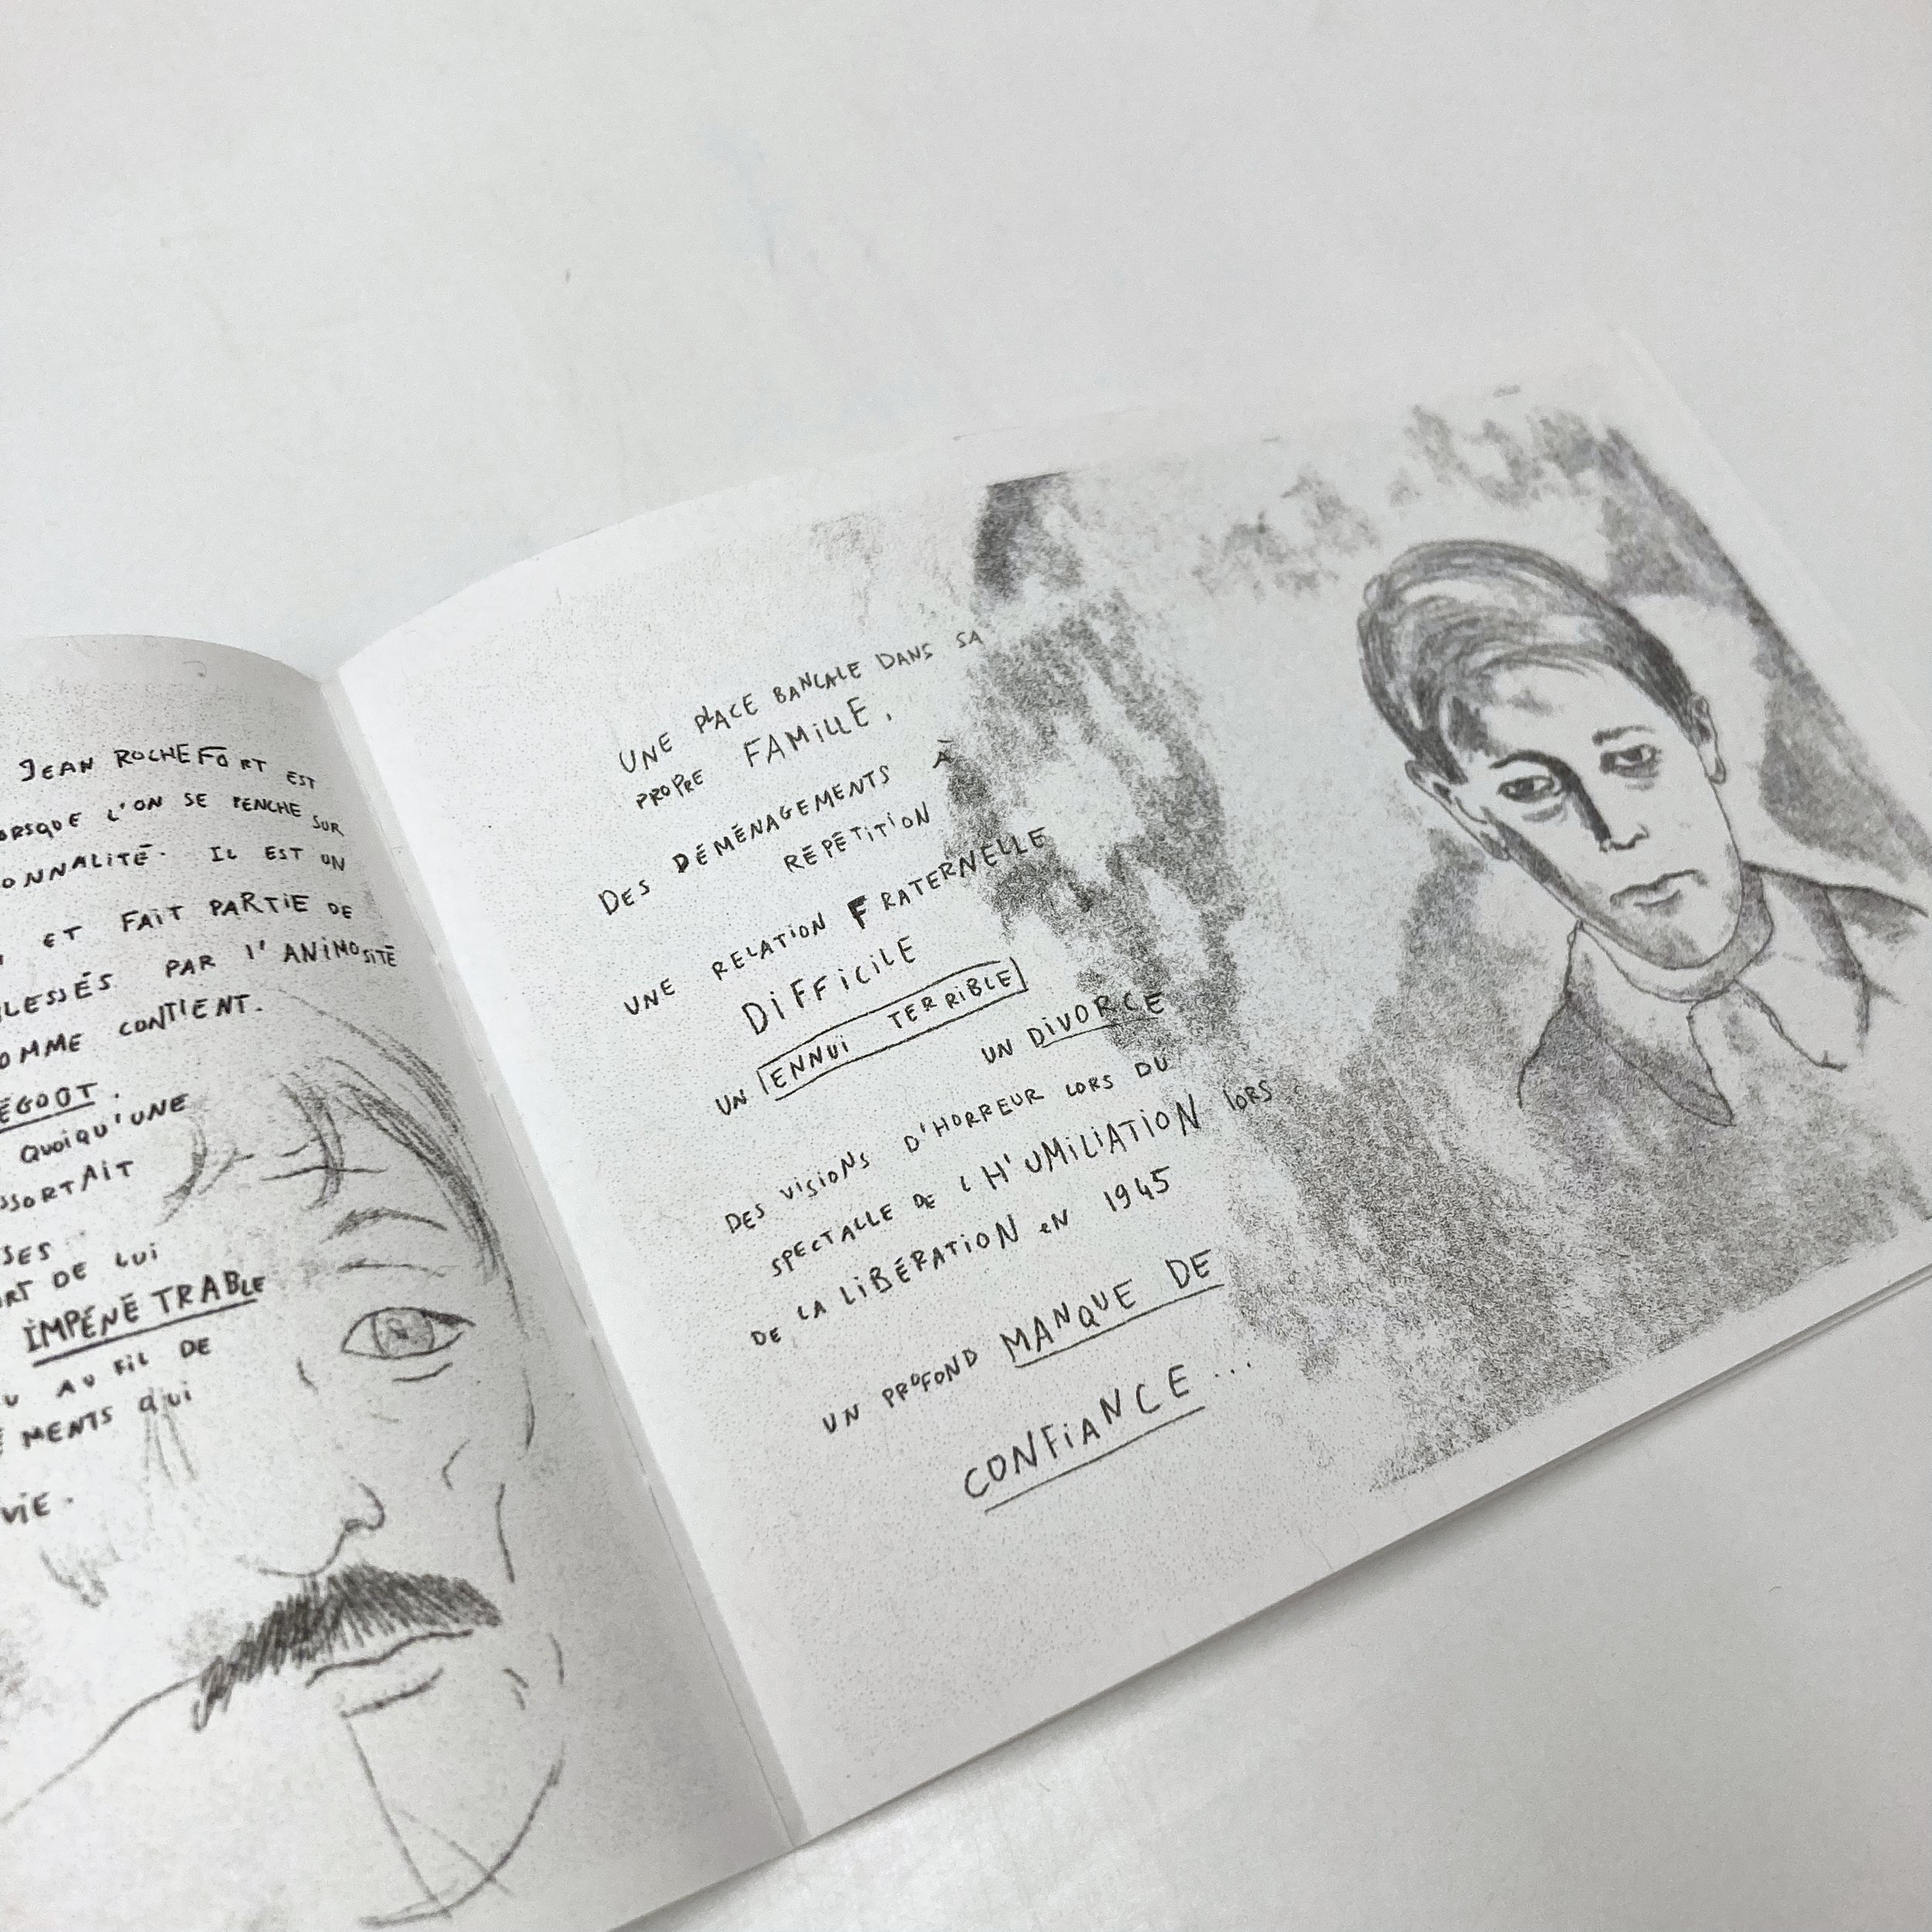 JEAN ROCHEFORT EST
L'ON SE PENCHE SUR
IL EST UN
ET FAIT PARTIE DE
PAR l'ANIMOSITÉ
CONTIENT.
QUOIQU'UNE
SES
DE LUI
IMPÉNÉTRABLE
AU FIL DE
QUI
VIE.
UNE PLACE BANCALE DANS SA
PROPRE FAMILLE,
DES DÉMÉNAGEMENTS À
RÉPÉTITION
UNE RELATION FRATERNELLE
DIFFICILE
UN ENNUI TERRIBLE
UN DIVORCE
DES VISIONS D'HORREUR LORS DU
SPECTALLE DE l H'UMILIATION lORS
DE LA LIBÉRATION EN 1945
UN PROFOND MANQUE DE
CONFIANCE...